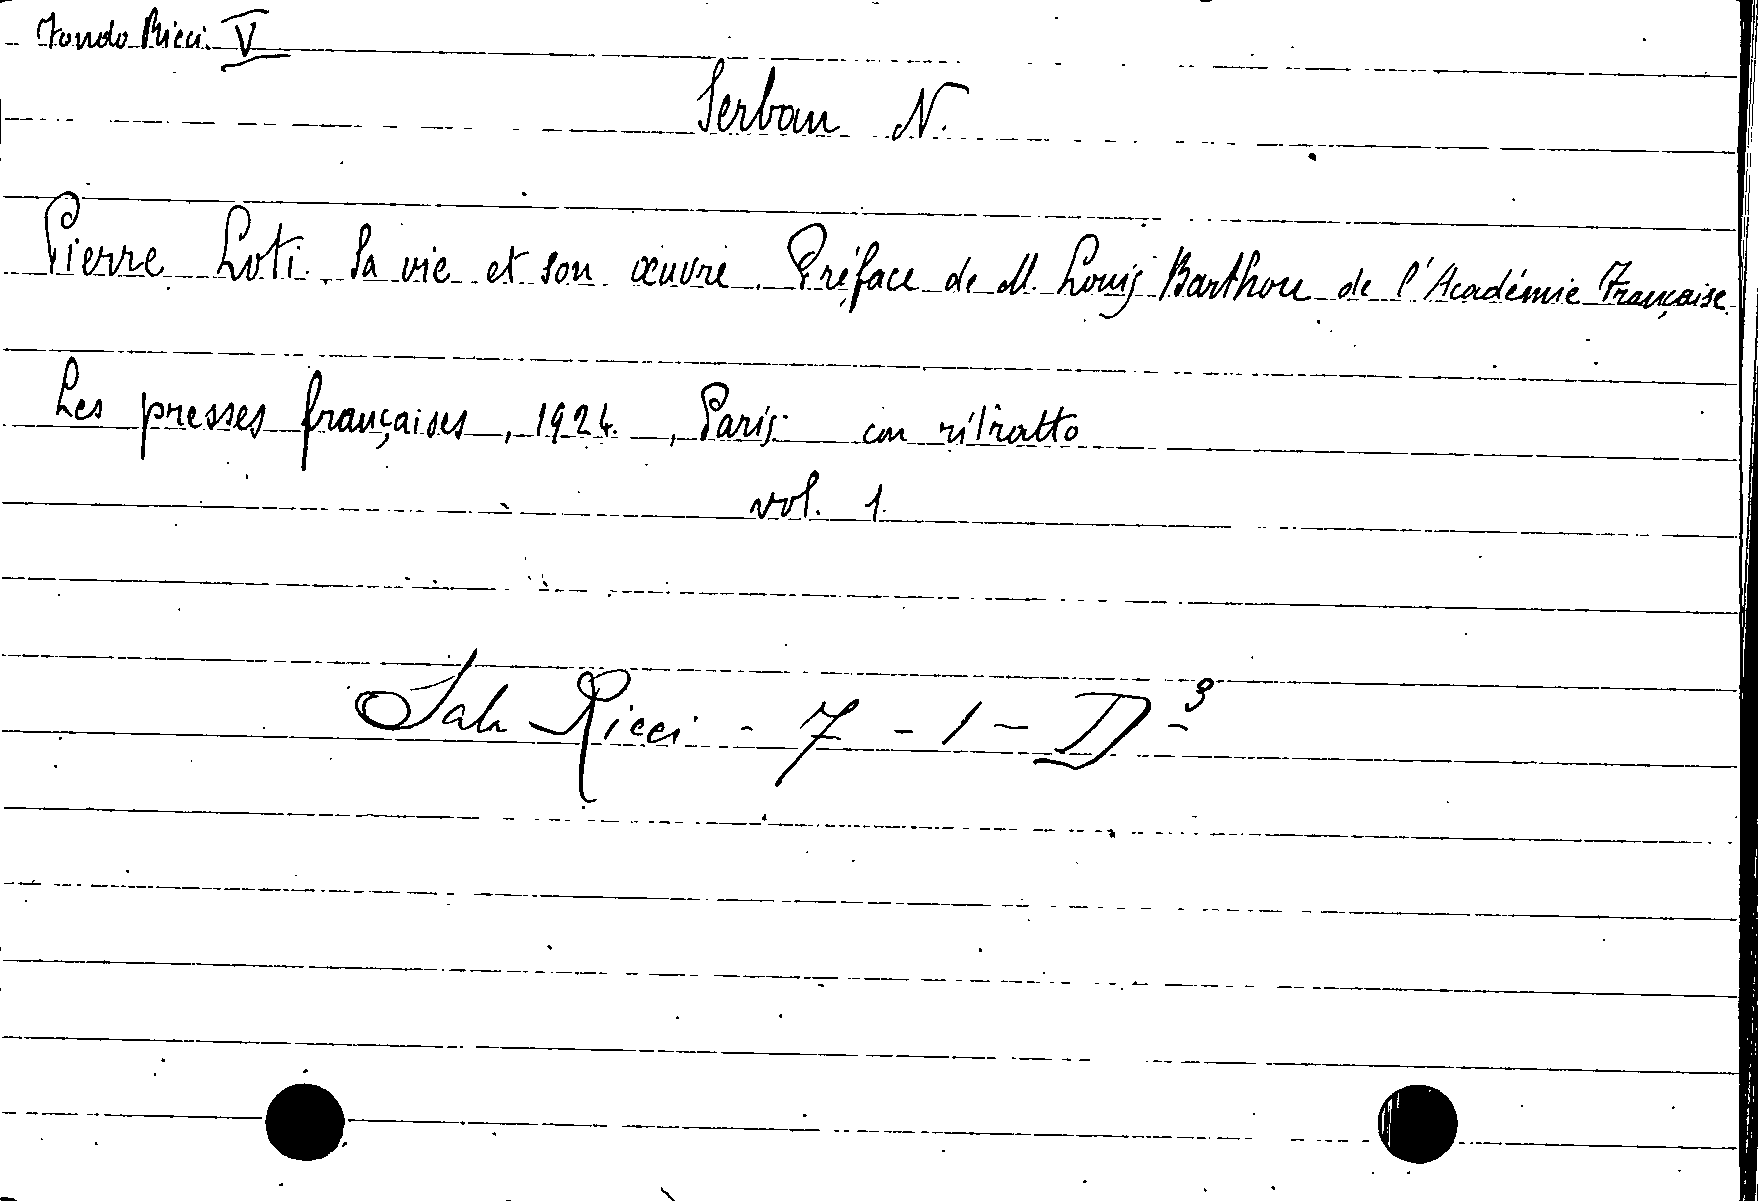 Fondo Ricci. V
Serban N.
Pierre Loti. Sa vie et son œuvre. Préface de M. Louis Barthou de l'Académie Française.
Les presses françaises, 1924., Paris con ritratto
vol. 1.
Sala Ricci - 7 - 1 - D 3